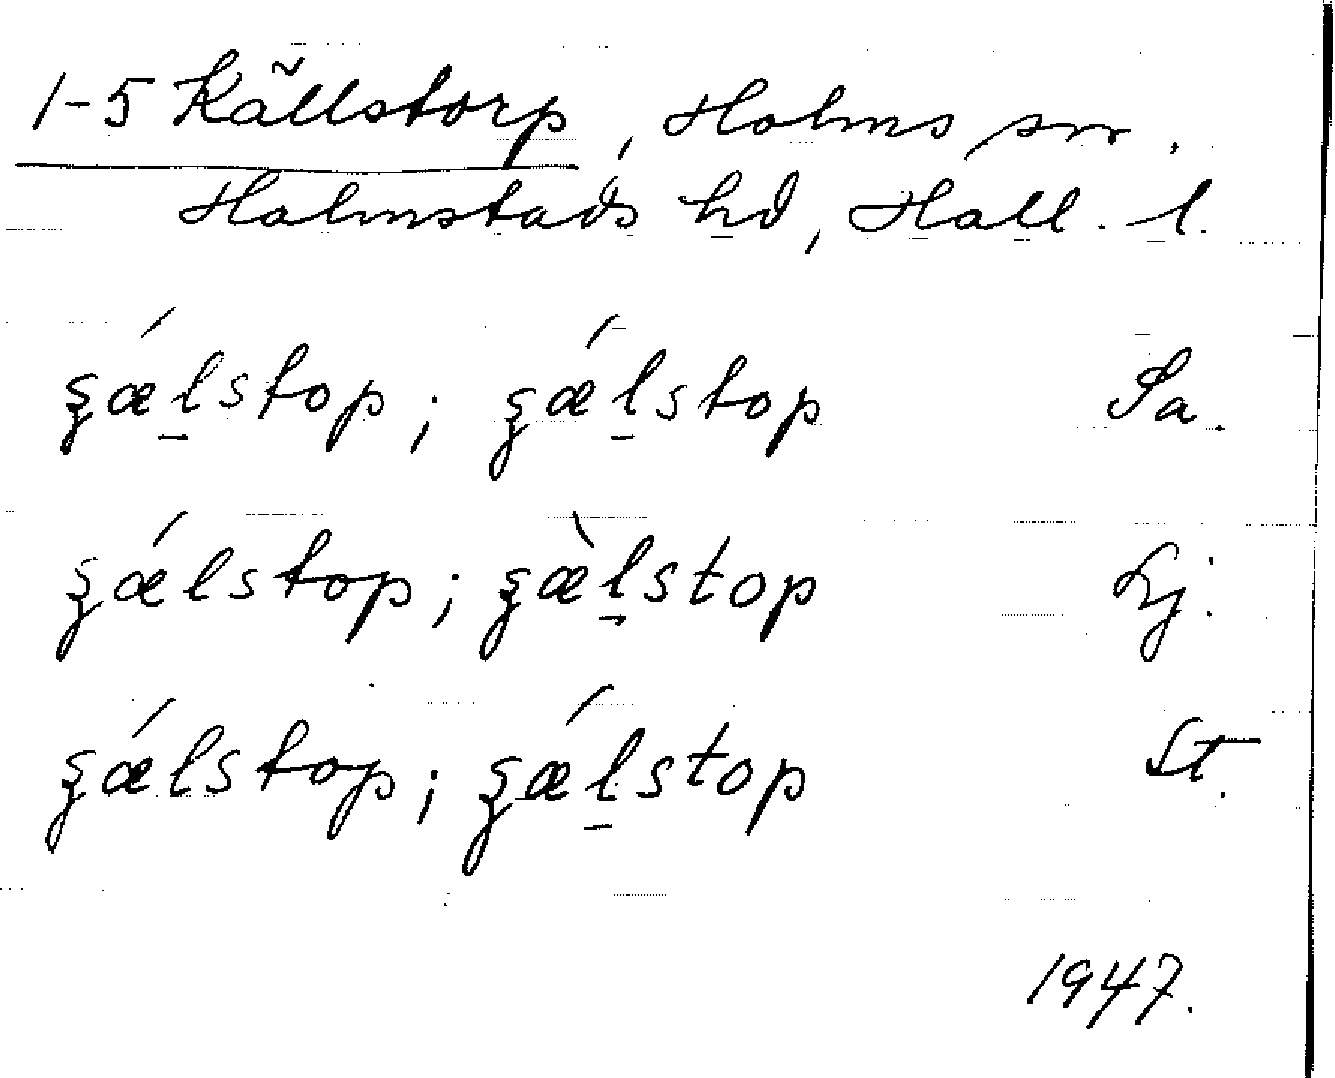 1-5 Källstorp, Holms sn.
Halmstads hd, Hall. l.
ʓǽl̠stop; ʓǽl̠stop Sa.
ʓǽlstop; ʓæ̀l̠stop Lj.
ʓǽlstop; ʓǽl̠stop St.
1947.